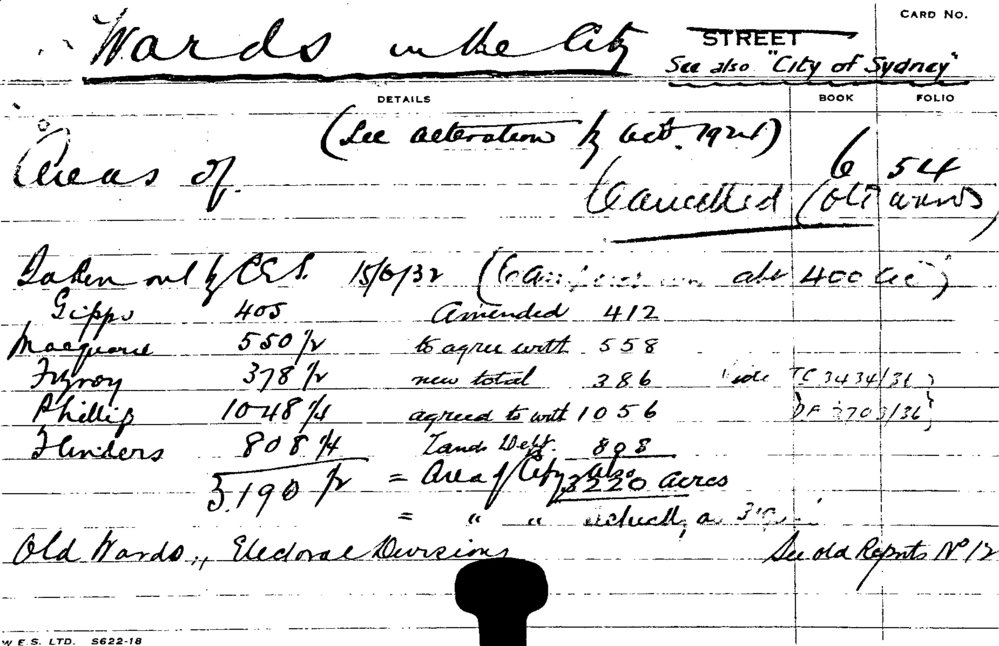 CARD No.
Wards in the City
STREET
See also "City of Sydney"
DETAILS BOOK FOLIO
(See alteration by Act. 1924)
Areas of. 6 54
Cancelled (old wards)
Taken out by C.E.S. 15/6/32 ( abt 400 ac)
Gipps 405 Amended 412
Macquarie 550 1/2 to agree with 558
Fitzroy 378 1/2 new total 386 Vide TC 3434/36 }
Phillip 1048 1/4 agreed to with 1056 DF 3703/36 }
Flinders 808 1/4 Lands Dept. 808
3.190 1/2 = Area of City also 3220 acres
= " " actually
Old Wards,, Electoral Divisions See old Reports No 12
W.E.S. LTD. S622-18